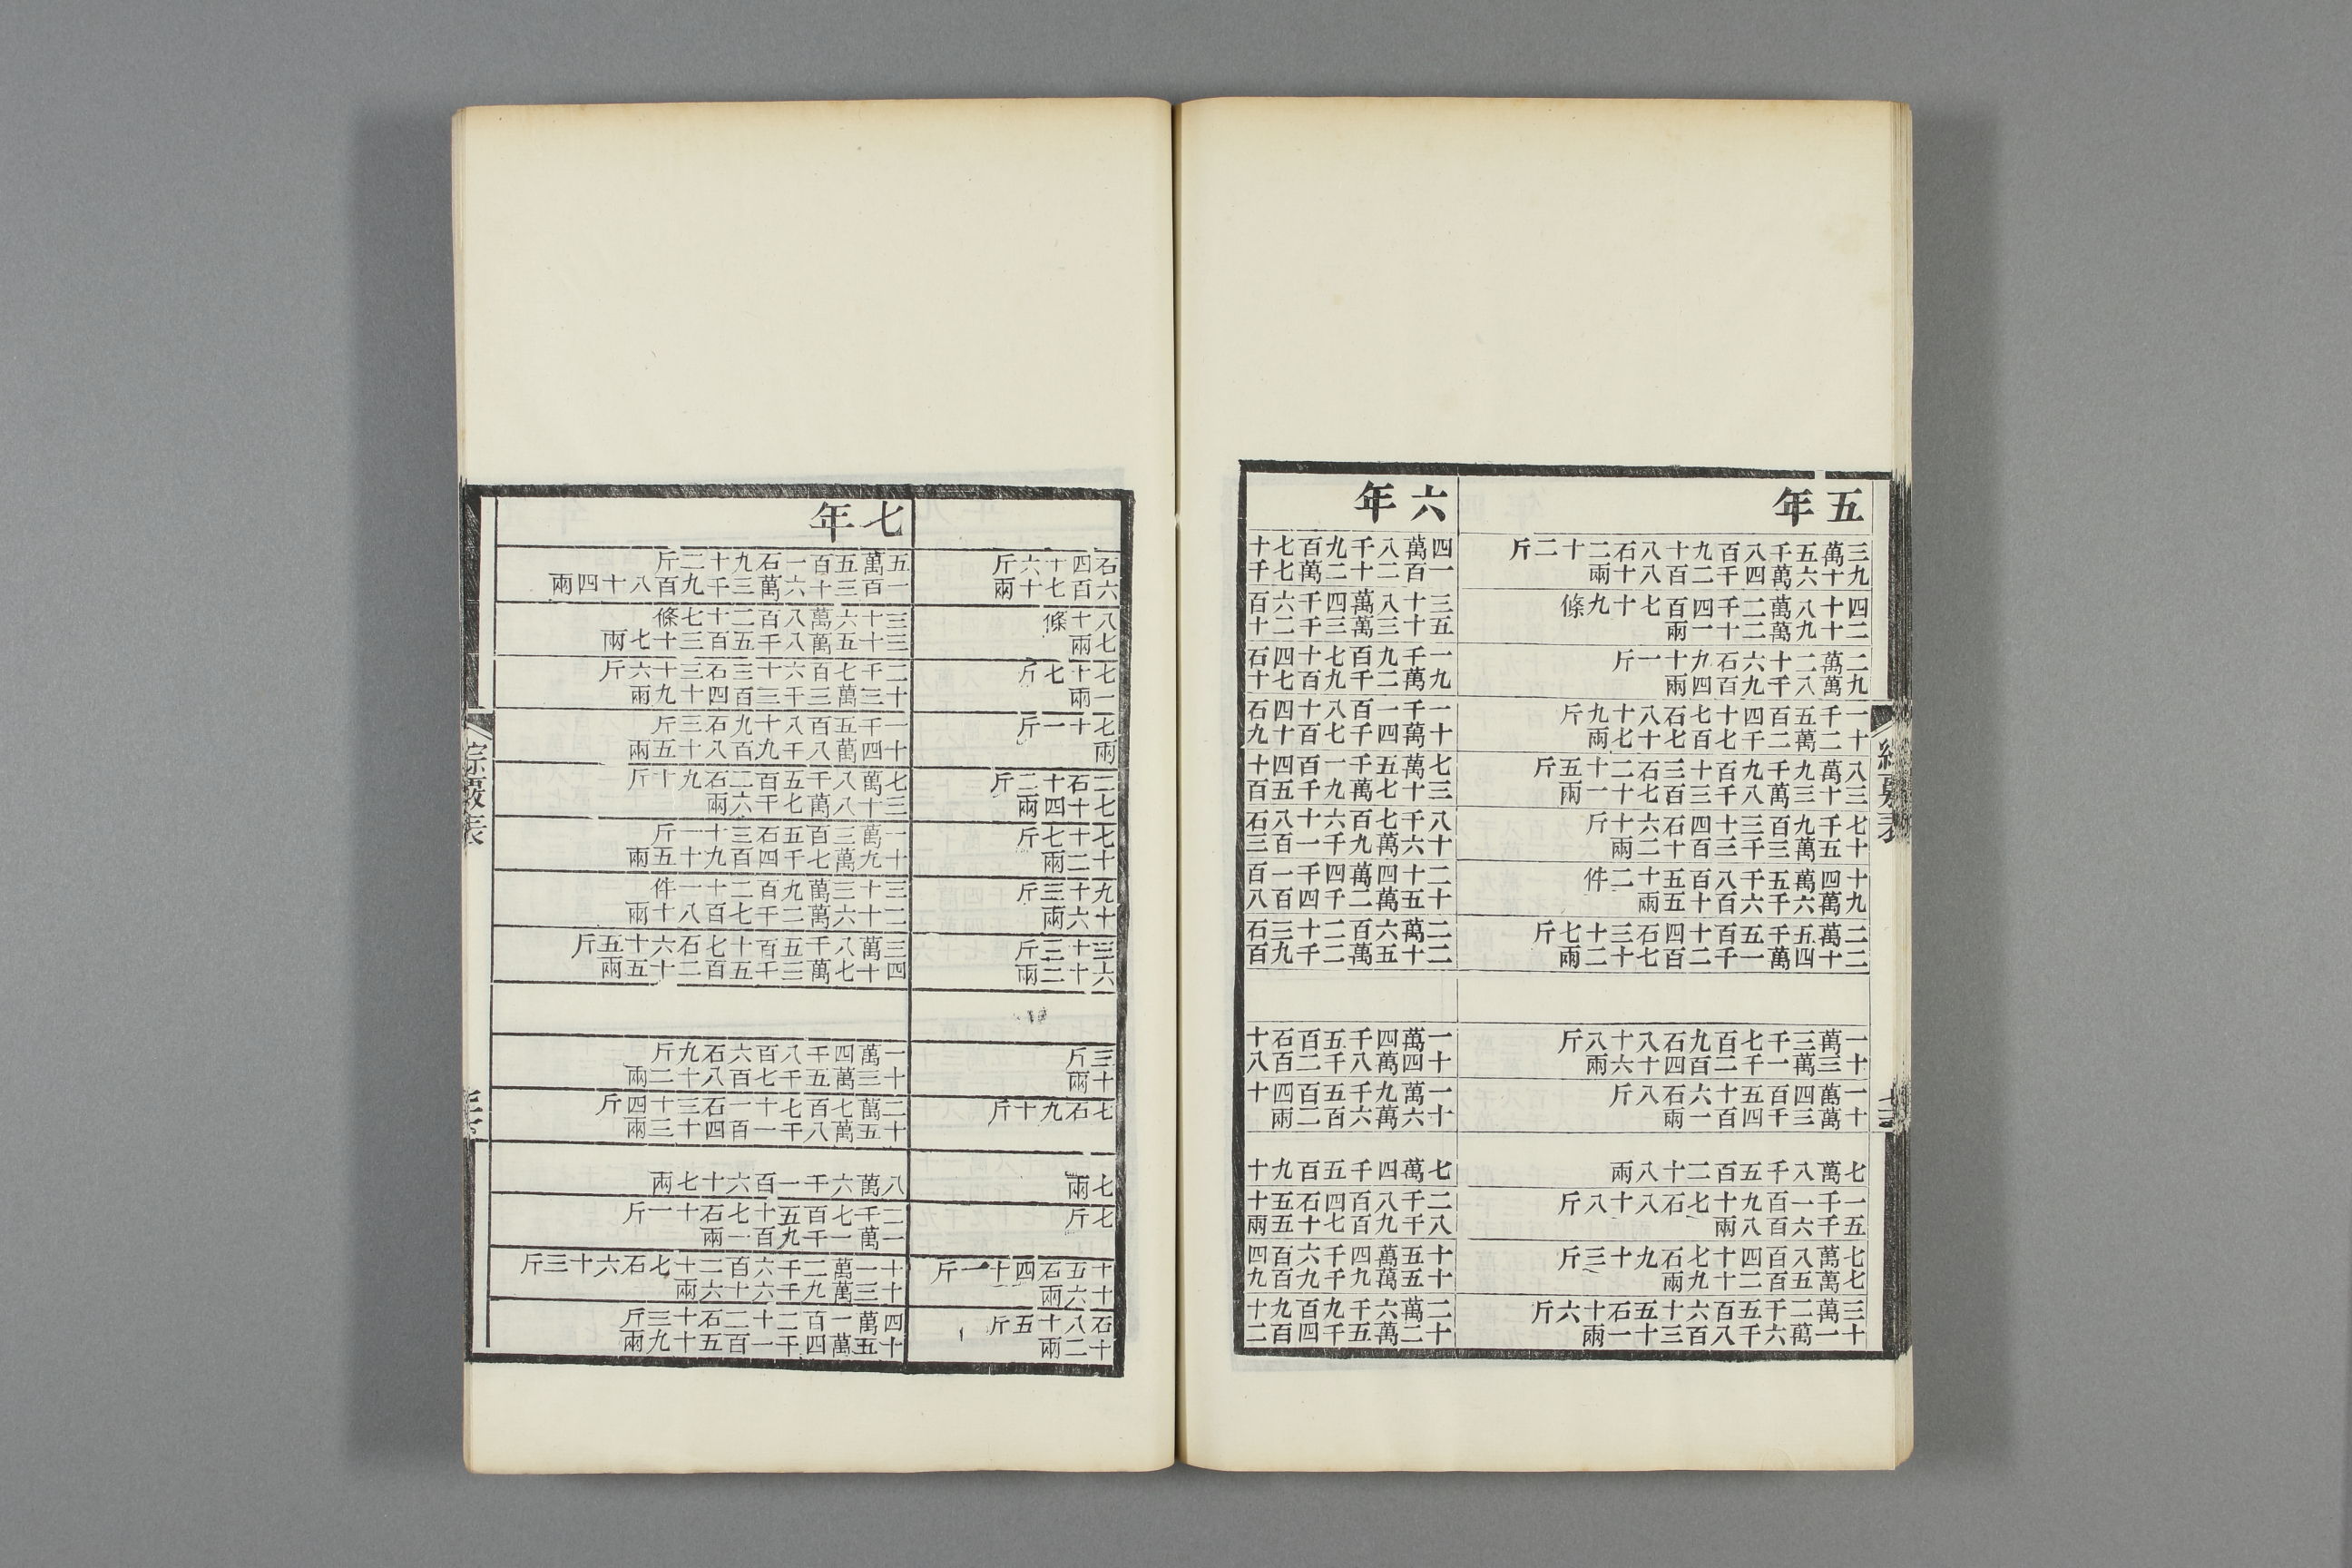 五年
三萬五千八百九十八石二十二斤
九十六萬四千二百八十兩
四十八萬二千四百七十九條
二十九萬二十一兩
二萬二十六石九十一斤
九萬八千九百四兩
一千五百四十七石八十九斤
十二萬二千七百七十七兩
八萬九千九百十三石二十五斤
三十三萬八千三百七十一兩
七千九百三十四石六十斤
十五萬三千三百十二兩
十四萬五千八百五十二件
九萬六千六百十五兩
二萬五千五百十四石三十七斤
二十四萬一千二百七十二兩
一萬三千七百九石八十八斤
十三萬一千二百四十六兩
一萬四百五十六石八斤
十萬三千四百一兩
七萬八千五百二十八兩
一千一百九十七石八十八斤
五千六百八兩
七萬八百四十七石九十三斤
七萬五百二十九兩
三萬二千五百六十五石十六斤
十一萬六千八百三十一兩
六年
四萬八千九百七十
一百二十二萬七千
三十八萬四千六百
五十三萬三千二十
一千九百七十四石
九萬二千九百七十
一千一百八十四石
十萬四千七百十九
七萬五千一百四十
三十七萬九千五百
八千七百六十八石
十六萬九千一百三
二十四萬四千一百
十五萬二千四百八
二萬六百二十三石
二十五萬二千九百
一萬四千五百石十
十四萬八千二百八
一萬九千五百四十
十六萬六百二兩
七萬四千五百九十
二千八百四石五十
八千九百七十五兩
十五萬四千六百四
十五萬九千九百九
二萬六千九百九十
十二萬五千四百二
石四十六斤
六百七十兩
八十條
七兩
七十七斤
一兩
七十一斤
兩
二石十二斤
七十四兩
七十七斤
十二兩
九十三斤
十六兩
三十三斤
六十二兩
三斤
十兩
七石九十斤
七兩
七斤
十五石四十一斤
十六兩
石八十五斤
十二兩
七年
五萬五百一石九十二斤
一百三十六萬三千九百八十四兩
三十六萬八百二十七條
三十五萬八千五百三十七兩
二千七百六十三石三十六斤
十三萬三千三百四十九兩
一千五百八十九石三斤
十四萬八千九百八十五兩
七萬八千五百二石九十斤
三十八萬七千六兩
一萬三百五石三十一斤
十九萬七千四百九十五兩
三十三萬九百二十一件
二十六萬二千七百八十兩
三萬八千五百十七石六十五斤
四十七萬三千五百二十五兩
一萬四千八百六石九斤
十三萬五千七百八十二兩
二萬七百七十一石三十四斤
十五萬八千一百四十三兩
八萬六千一百六十七兩
二千七百五十七石十一斤
一萬一千九百一兩
十一萬二千六百二十七石六十三斤
十三萬九千六十六兩
四萬一百二十二石十三斤
十五萬四千一百五十九兩
綜覈表